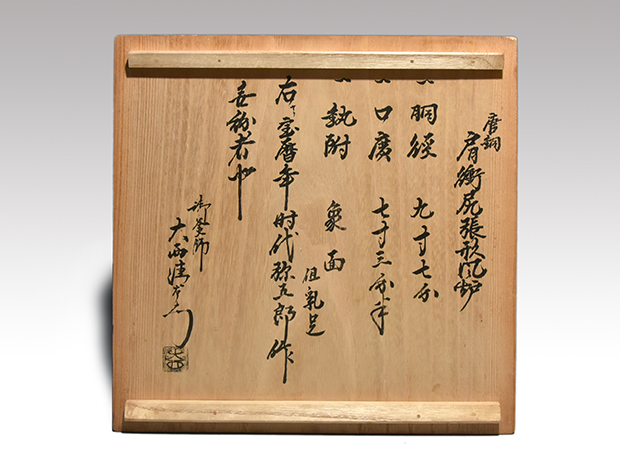 唐銅
肩衝尻張形風炉
胴経 九寸七分
口廣 七寸三分半
執附 象面
但乳足
右ハ宝暦年時代弥五郎作
無紛者也
御釜師
大西清右衛門